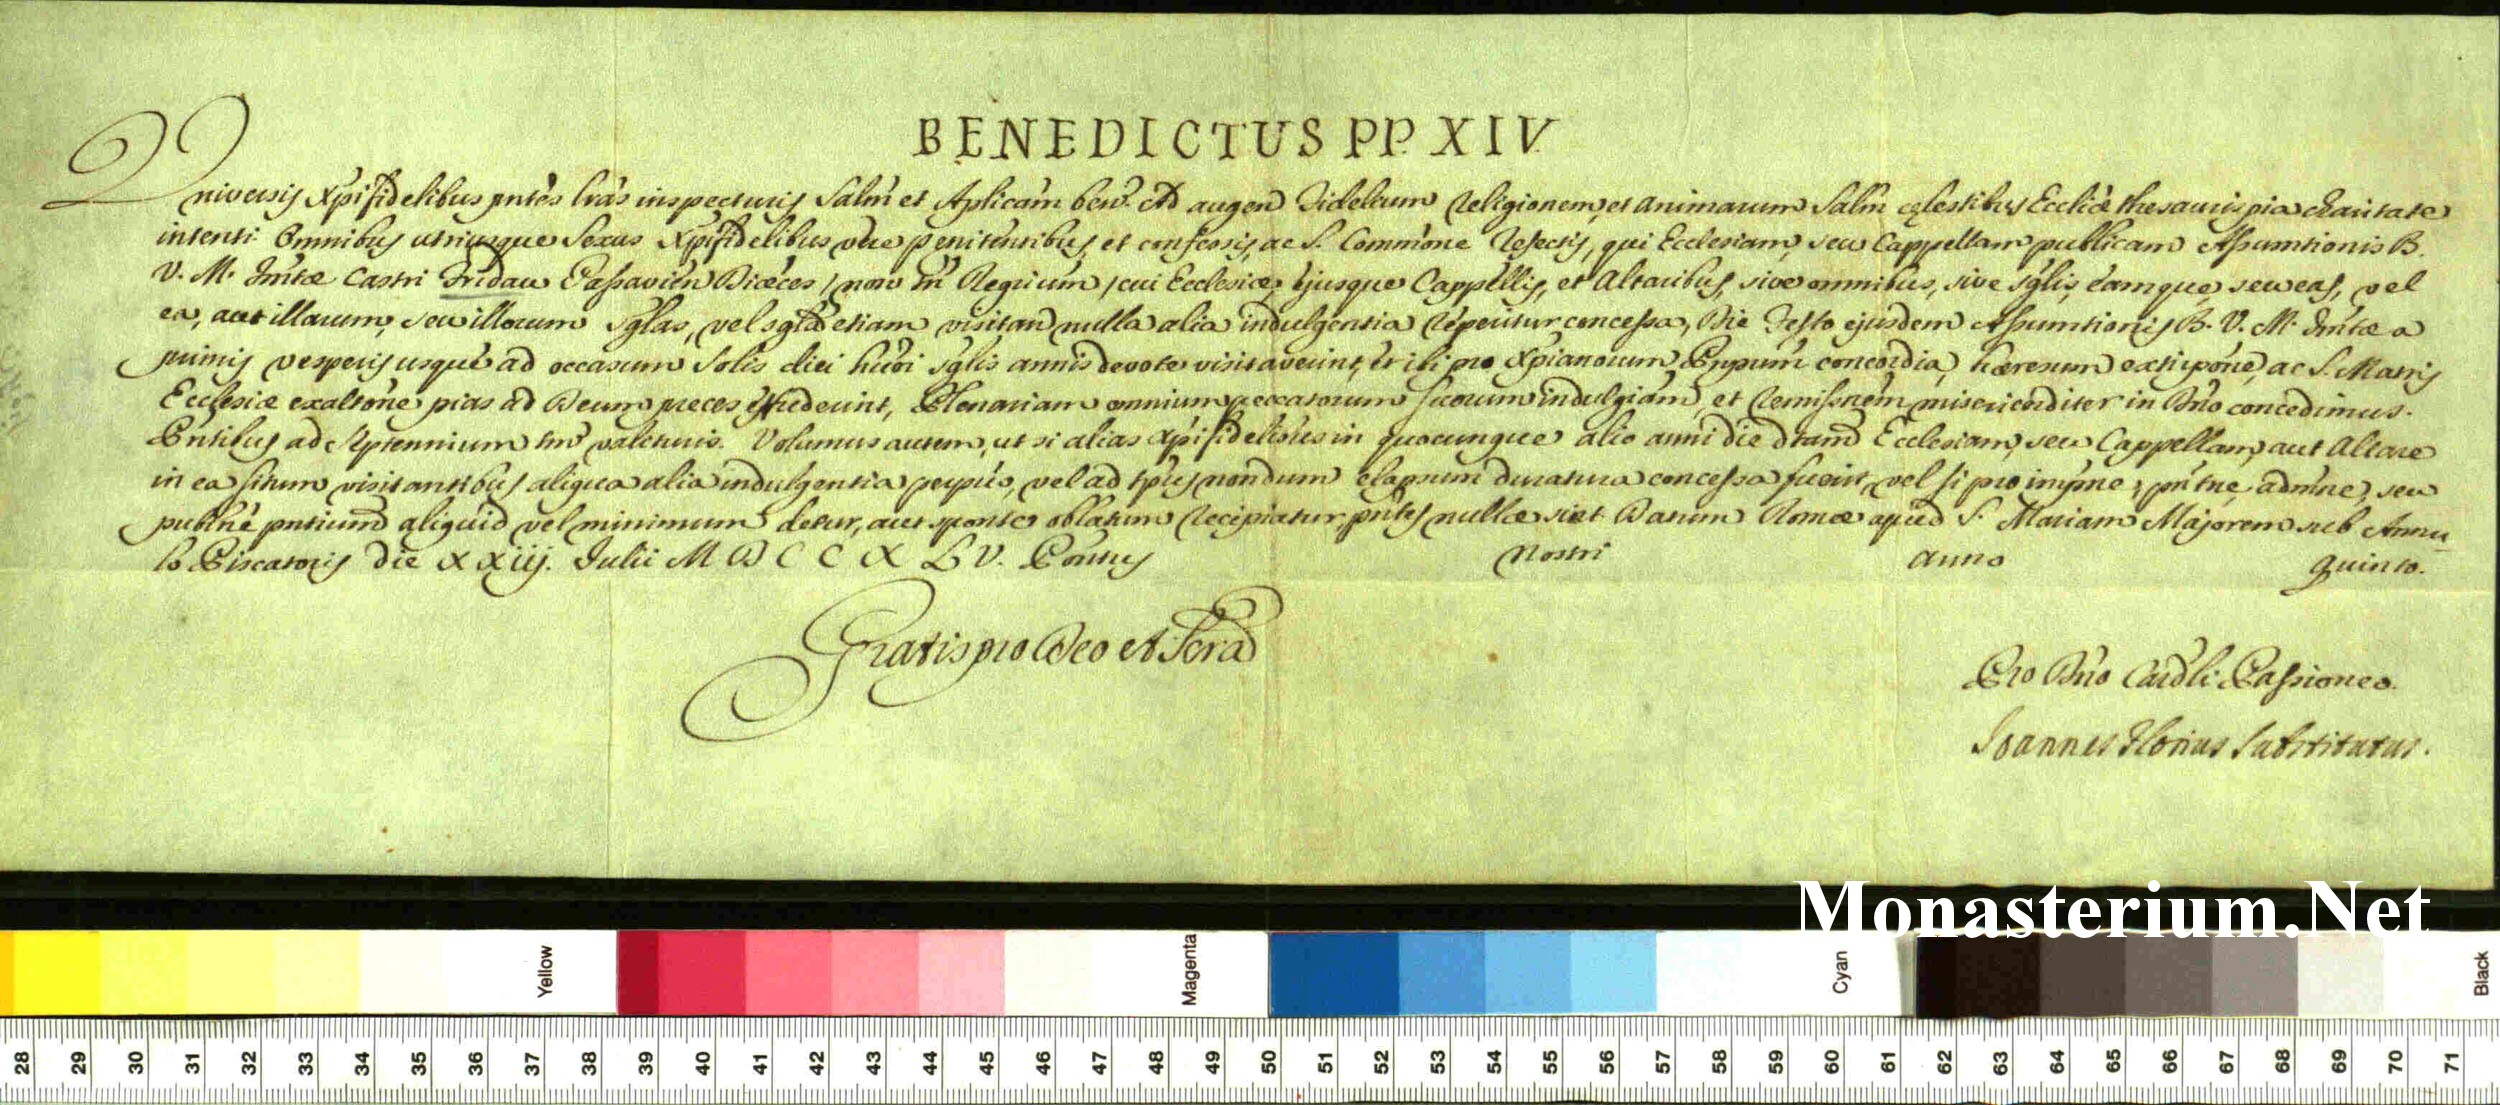 BENEDICTUS PP. XIV.
Universis Xpifidelibus pntes lras inspecturis Salm et Aplicam ben. Ad augen Fidelium Religionem, et animarum Salm cęlestibus Eccliæ thesauris pia charitate
intenti Omnibus utriusque Sexus Xpifidelibus vere penitentibus, et confessis, ac S. Commone refectis, qui Ecclesiam, seu Cappellam publicam Assumtionis B.
V. M. Immtæ Castri Fridau Passavien Diæces, non tn Regrium, cui Ecclesiæ, ejusque Cappellis, et Altaribus, sive omnibus, sive sglis, eamque, seu eas, vel
ea, aut illarum, seu illorum sglas, vel sgla etiam visitan nulla alia indulgentia reperitur concessa, Die Festo ejusdem Assumtionis B. V. M. Immtæ a
primis vesperis usque ad occasum Solis diei hujusmodi sglis annis devote visitaverint, et ibi pro Xpianorum Prpum concordia, hæresum extirpone, ac S. Matris
Ecclesiæ exaltone pias ad Deum preces effuderint, Plenariam omnium peccatorum suorum indulgiam, et remissnem misericorditer in Dno concedimus.
Pntibus ad septennium tm valituris. Volumus autem, ut si alias Xpifidelibus in quocunque alio anni die dtam Ecclesiam, seu Cappellam, aut Altare
in ea situm visitantibus aliqua alia indulgentia perpuo, vel ad tpus nondum elapsum duratura concessa fuerit, vel si pro impne, pntne, admne, seu
publne pntium aliquid vel minimum detur, aut sponte oblatum recipiatur, pntes nullæ sint. Datum Romæ apud S. Mariam Majorem sub Annu
lo Piscatoris die XXiij. Julii MDCCXLV. Pontus Nostri anno quinto.
Gratis pro Deo et Scra
Pro Dno Cardli Passioneo.
Joannes Florius Substitutus.
Monasterium.Net
Yellow Magenta Cyan Black
28 29 30 31 32 33 34 35 36 37 38 39 40 41 42 43 44 45 46 47 48 49 50 51 52 53 54 55 56 57 58 59 60 61 62 63 64 65 66 67 68 69 70 71